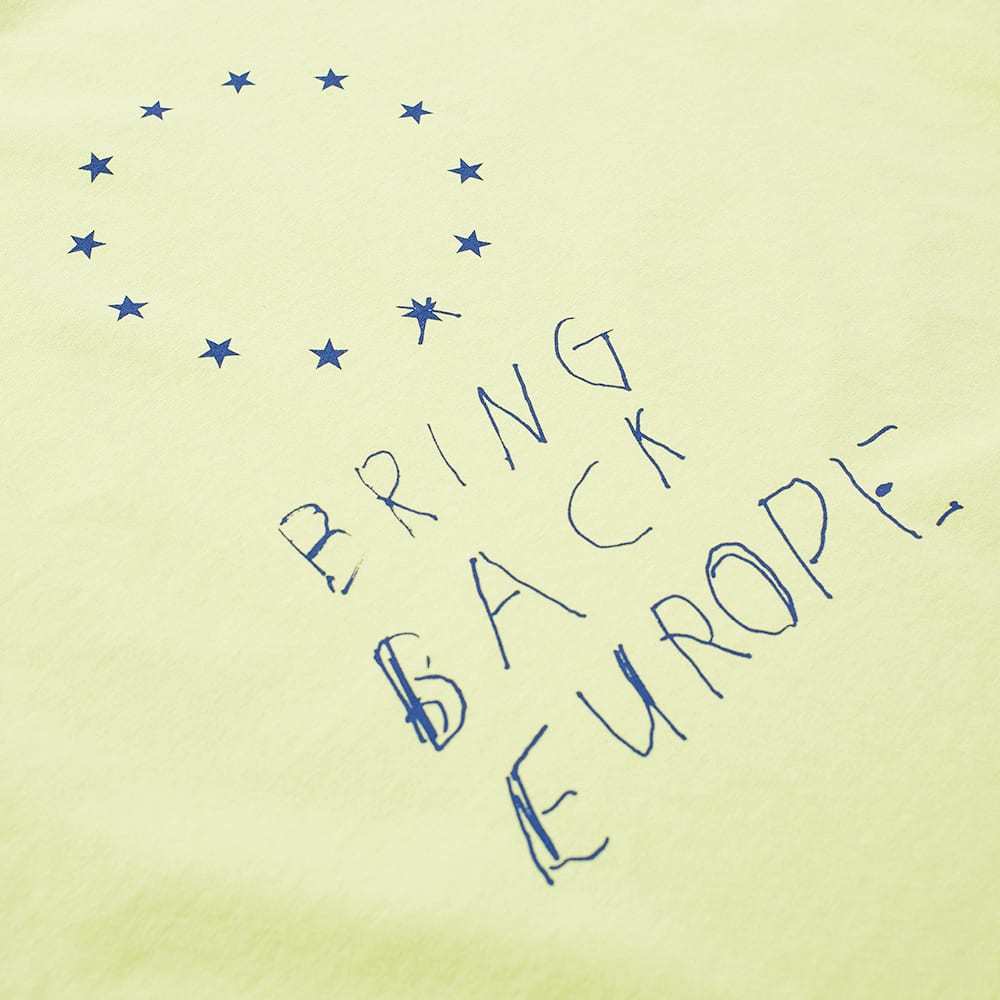 BRING
BACK
EUROPE